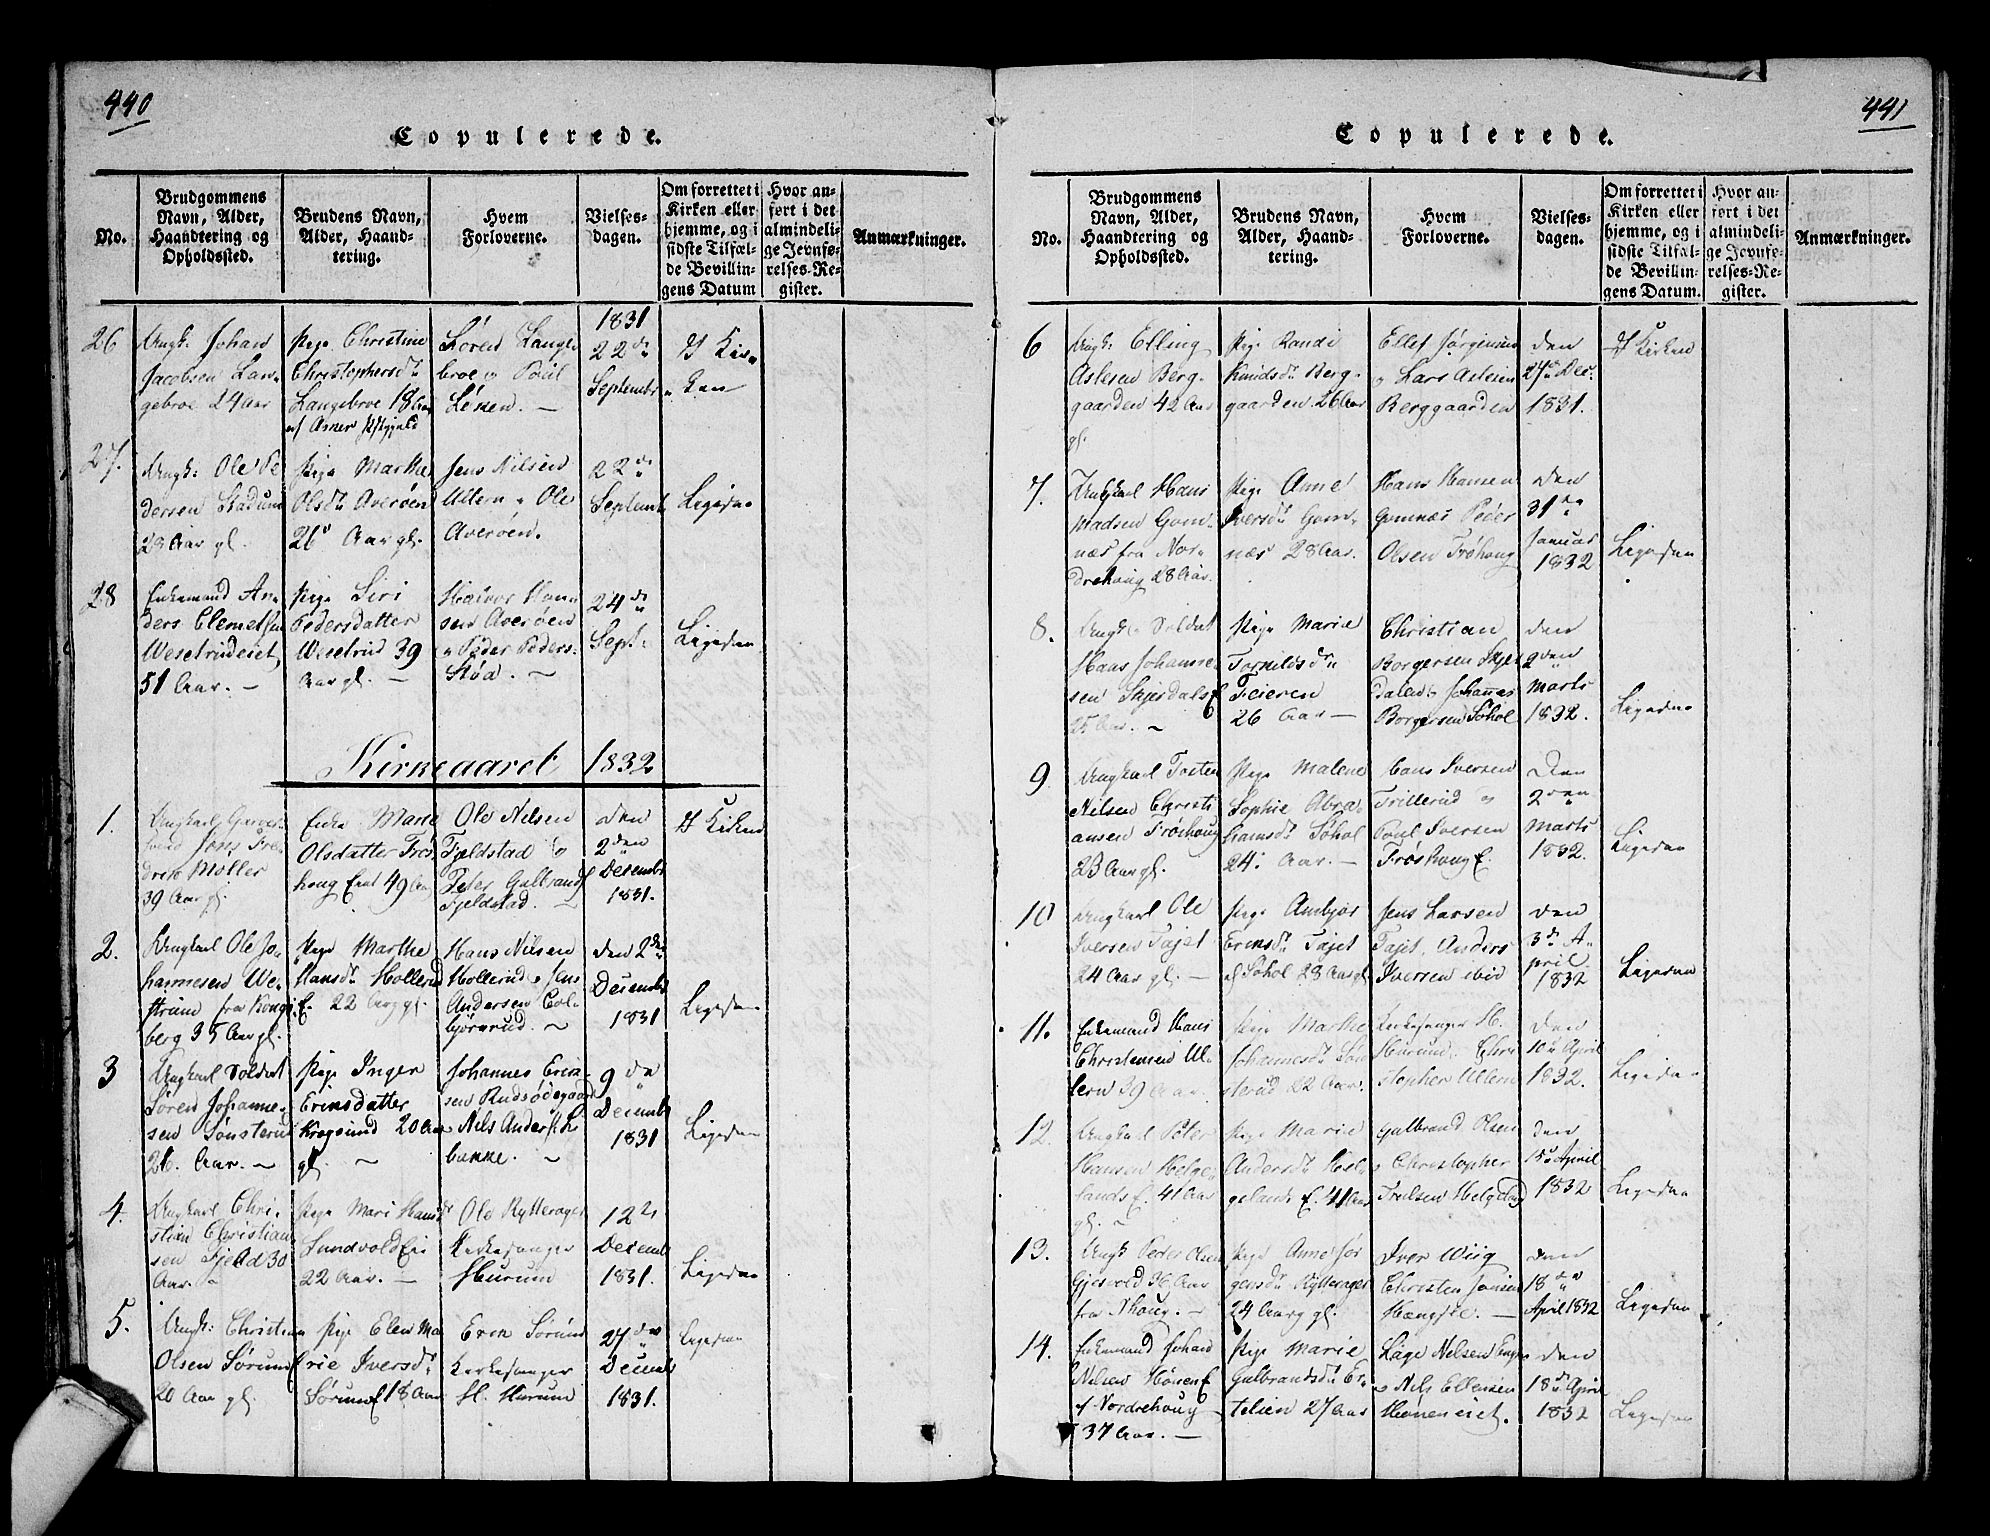 440
Copulerede.
No.
Brudgommens
Navn, Alder,
Haandtering og
Opholdssted.
Brudens Navn,
Alder, Haand-
tering.
Hvem
Forloverne.
Vielses-
dagen.
Om forrettet i
Kirken eller
hjemme, og i
sidste Tilfæl-
de Bevillin-
gens Datum
Hvor an-
ført i det
almindeli-
ge Jevnfø-
relses-Re-
gister.
Anmærkninger.
26
Ungk: Johan
Jacobsen Lan-
gebroe 24 Aar
Pige Christine
Christophersdr
Langebroe 18 Aar
Søren Lange
broe og Poul
Lexen. —
1831
22de
Septembr
I Kir-
ken
27.
Ungk: Ole Pe
dersen Stadum
23 Aar gl.
Pige Marthe
Olsdr Averøen
26 Aar gl.
Jens Nilsen
Ultern og Ole
Averøen.
22de
Septembr
Ligedan
28
Enkemand An-
ders Clemetsen
Wesetrudeiet
51 Aar. —
Pige Siri
Pedersdatter
Wesetrud 39
Aar gl. —
Halvor Han-
sen Averøen
og Peder Peders-
Stød. —
24de
Sept.
Ligedan
Kirkeaaret 1832
1.
Ungkarl
Jens Fre-
drik Møller
39 Aar gl.
Enke Marie
Olsdatter Frøs
houg Eiet 49 Aar
Ole Nilsen
Fjeldstad og
Peter Gulbrands
Fjeldstad. —
den
2den
Decembr
1831.
I Kirken
2.
Ungkarl Ole Jo-
hannesen We-
strum fra Kongs
berg 35 Aar gl.
Pige Marthe
Hansdr Hollerud
E. 22 Aar gl.
Hans Nilsen
Hollerud og Jens
Andersen Col-
bjørnrud. —
den 2den
Decembr
1831
Ligedan
3
Ungkarl Soldat
Søren Johanne-
sen Sønsterud
21. Aar. —
Pige Inger
Ericsdatter
Krogsund 20 Aar
gl. —
Johannes Erik-
sen Rudsødegaard
og Nils Anders
bakke. —
9de
Decembr
1831
Ligedan
4.
Ungkarl Chri-
stian Christian
sen Fjeld 30
Aar. —
Pige Mari Hansdr
Sundvold Eie
22 Aar. —
Ole Rytterager
Kirkesanger
Hurum
12te
Decemb
1831.
Ligedan
5.
Ungk: Christian
Olsen Sørum E
20 Aar gl.
Pige Elen Ma
rie Iversdr
Sørum E 18 Aar
Erik Sørum
Kirkesanger
H. Hurum
27de
Decemb
1831.
Ligedan
441
Copulerede.
No.
Brudgommens
Navn, Alder,
Haandtering og
Opholdssted.
Brudens Navn,
Alder, Haand-
tering.
Hvem
Forloverne.
Vielses-
dagen.
Om forrettet i
Kirken eller
hjemme, og i
sidste Tilfæl-
de Bevillin-
gens Datum.
Hvor an-
ført i det
almindeli-
ge Jevnfø-
relses-Re-
gister.
Anmærkninger.
6
Ungk: Elling
Aslesen Berg-
gaarden 42 Aar
gl.
Pige Randi
Knudsdr Berg-
gaarden 26 Aar
Ellef Jørgensen
og Lars Aslesen
Berggaarden
den
27de Dec.
1831.
I Kirken
7.
Ungkarl Hans
Madsen Gom-
næs fra Nor-
drehoug 28 Aar.
Pige Anne
Iversdr Gom-
næs 28 Aar.
Hans Hansen
Gomnæs Peder
Olsen Frøhoug
den
31te
Januar
1832
Ligedan
8.
Ungk. Soldat
Hans Johanne-
sen Skjerdals E
25 Aar. —
Pige Marie
Tornildsdr
Feieren
26 Aar —
Christian
Borgersen Skjer
dalen og Johannes
Borgersen Sohol
den
2den
Marts
1832.
Ligedan
9
Ungkarl Tosten
Nilsen Christi
ansen Frøshoug
23 Aar gl.
Pige Malene
Sophie Abra
hamsdr Sohol
24. Aar. —
Hans Iversen
Trillerud og
Poul Iversen
Frøshoug E.
Den
2den
Marts
1832.
Ligedan
10
Ungkarl Ole
Iversen Fajet
24 Aar gl. —
Pige Anbjør
Ericsdr Fajet
af Sohol 28 Aar gl
Jens Larsen
Fajet, Anders
Iversen ibid
den
3de A-
pril
1832
Ligedan
11.
Enkemand Hans
Christensen Ul-
lern 39 Aar.
Pige Marthe
Johannesdr Søn
sterud 22 Aar.
Kirkesanger H.
Hurum, Chri
stopher Ullern
den
10de April
1832.
Ligedan
12.
Ungkarl Peter
Hansen Helge-
lands E. 41 Aar
gl. —
Pige Marie
Andersdr Hel-
geland E. 41 Aar
Gulbrand Olsen
og Christopher
Trulsen Helgeland
den
15de April
1832
Ligedan
13.
Ungk Peder Olsen
Gjesvold 36 Aar
fra Nhoug. —
Pige Anne Jør
gensdr Rytterager
24 Aar gl.
Iver Wiig
Christen Jonsen
den
18de
April 1832
Ligedan
14.
Enkemand Johan
Nilsen Hønen E
af Nordrehoug
37 Aar. —
Pige Marie
Gulbrandsdr Er-
telien 27 Aar
Lage Nilsen
og Nils Ellensen
Høneneiet.
den
18de April
1832
Ligedan